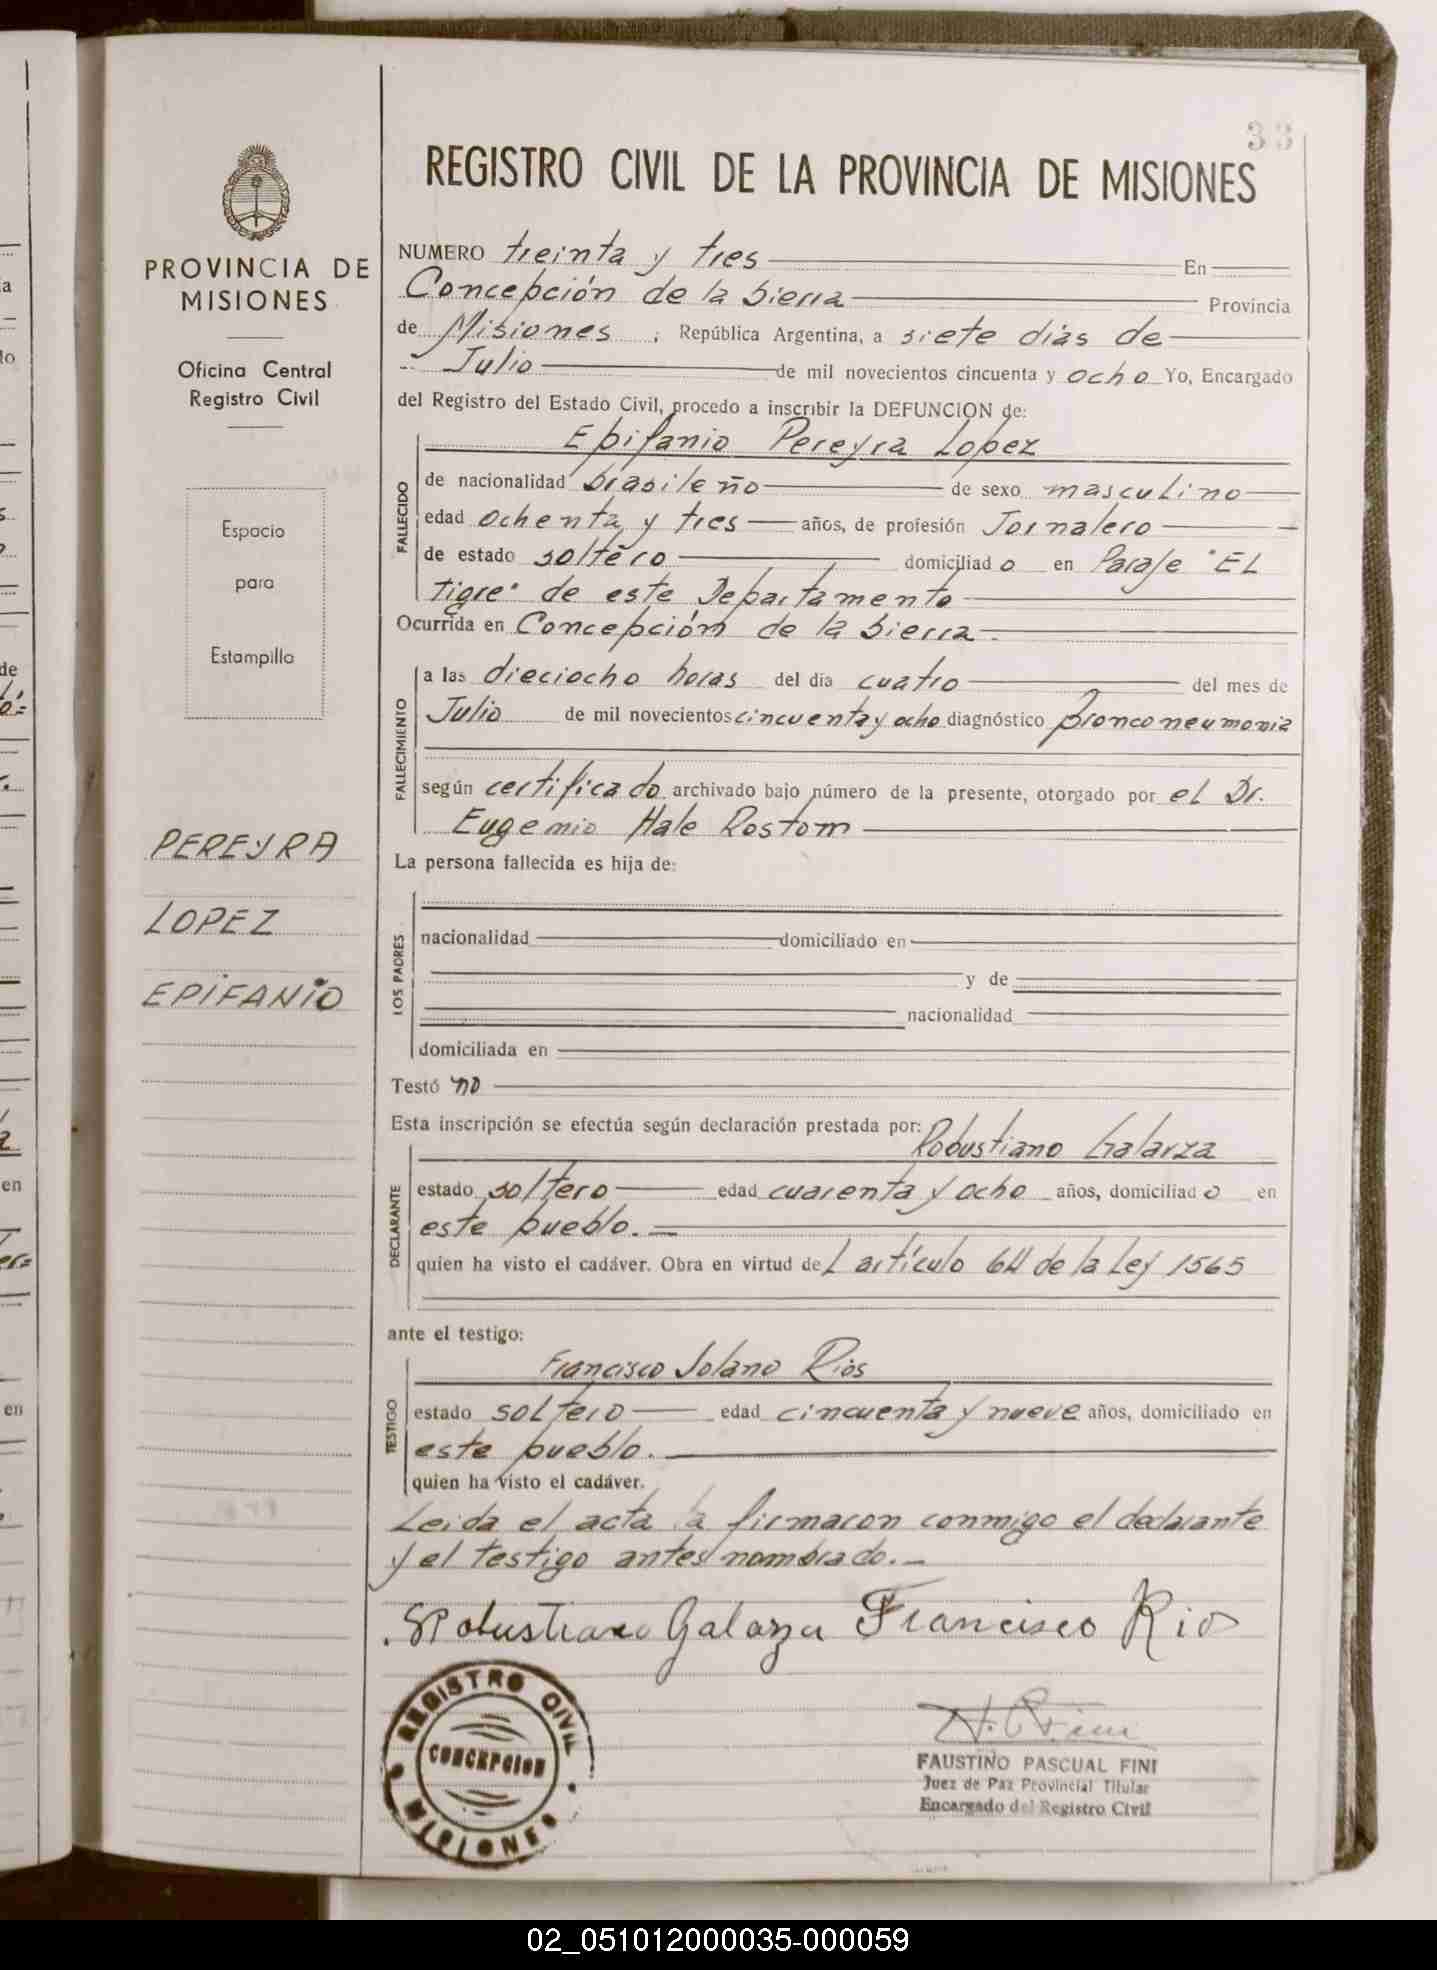 33
REGISTRO CIVIL DE LA PROVINCIA DE MISIONES
PROVINCIA DE
MISIONES
Oficina Central
Registro Civil
Espacio
para
Estampilla
PEREYRA
LOPEZ
EPIFANIO
NUMERO treinta y tres En
Concepción de la Sierra Provincia
de Misiones, República Argentina, a siete dias de
Julio de mil novecientos cincuenta y ocho Yo, Encargado
del Registro del Estado Civil, procedo a inscribir la DEFUNCION de:
Epifanio Pereyra Lopez
FALLECIDO
de nacionalidad brasileño de sexo masculino
edad ochenta y tres años, de profesión Jornalero
de estado soltero domiciliado en Paraje "EL
tigre" de este Departamento
Ocurrida en Concepción de la Sierra.
FALLECIMIENTO
a las dieciocho horas del día cuatro del mes de
Julio de mil novecientos cincuenta y ocho diagnóstico bronconeumonia
según certificado archivado bajo número de la presente, otorgado por el Dr.
Eugenio Hale Rostom
La persona fallecida es hija de:
LOS PADRES
nacionalidad domiciliado en
y de
nacionalidad
domiciliada en
Testó no
Esta inscripción se efectúa según declaración prestada por:
Robustiano Galarza
DECLARANTE
estado soltero edad cuarenta y ocho años, domiciliado en
este pueblo.
quien ha visto el cadáver. Obra en virtud del artículo 64 de la Ley 1565
ante el testigo:
Francisco Solano Rios
TESTIGO
estado soltero edad cincuenta y nueve años, domiciliado en
este pueblo.
quien ha visto el cadáver.
Leida el acta la firmaron conmigo el declarante
y el testigo antes nombrado.
Robustiano Galarza Francisco Rios
REGISTRO CIVIL
CONCEPCION
MISIONES
FAUSTINO PASCUAL FINI
Juez de Paz Provincial Titular
Encargado del Registro Civil
02_051012000035-000059